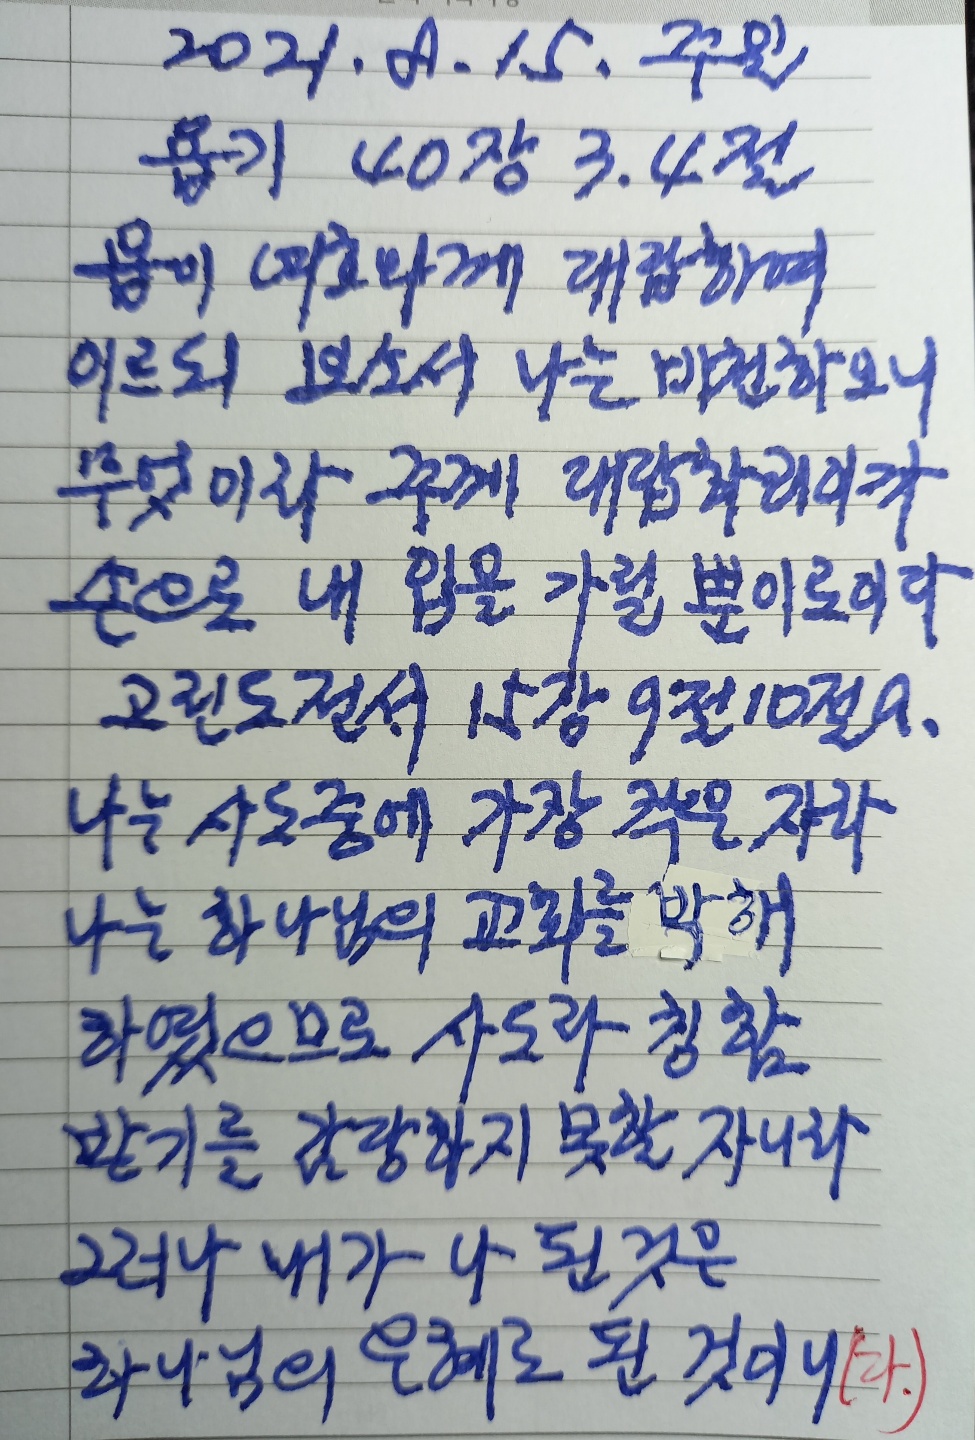 2021. 8. 15. 주일
욥기 40장 3.4절
욥이 여호와께 대답하여
이르되 보소서 나는 비천하오니
무엇이라 주께 대답하리이까
손으로 내 입을 가릴 뿐이로이다
고린도전서 15장 9절10절a.
나는 사도중에 가장 작은 자라
나는 하나님의 교회를 박해
하였으므로 사도라 칭함
받기를 감당하지 못할 자니라
그러나 내가 나 된것은
하나님의 은혜로 된 것이니(다.)